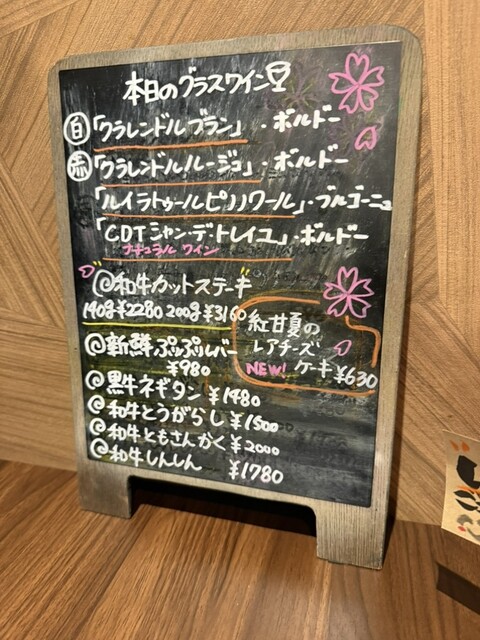 本日のグラスワイン
白「クラレンドルブラン」・ボルドー
赤「クラレンドルルージュ」・ボルドー
「ルイラトゥールピノノワール」・ブルゴーニュ
「CDTジャン・デ・トレイユ」・ボルドー
ナチュラル ワイン
@和牛カットステーキ
140g¥2280 200g¥3160
@新鮮ぷりぷりレバー
¥980
@黒牛ネギタン ¥1480
@和牛とうがらし ¥1500
@和牛ともさんかく ¥2000
@和牛しんしん ¥1780
紅甘夏の
レアチーズ
NEW! ケーキ ¥630